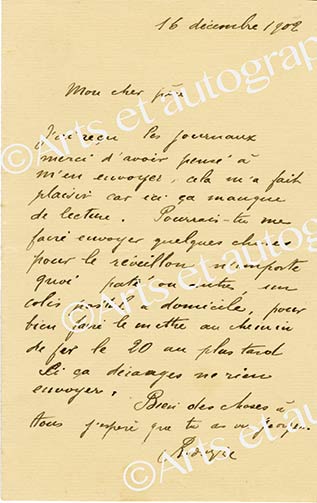 16 décembre 1902
Mon cher père
J'ai reçu les journaux
merci d'avoir pensé à
m'en envoyer, cela m'a fait
plaisir car ici ça manque
de lecture. Pourrais-tu me
faire envoyer quelques choses
pour le réveillon n'importe
quoi paté ou autre, un
colis postal à domicile, pour
bien faire le mettre au chemin
de fer le 20 au plus tard
Si ça dérange ne rien
envoyer.
Bien des choses à
tous j'espère que tu as
©Arts et autographes